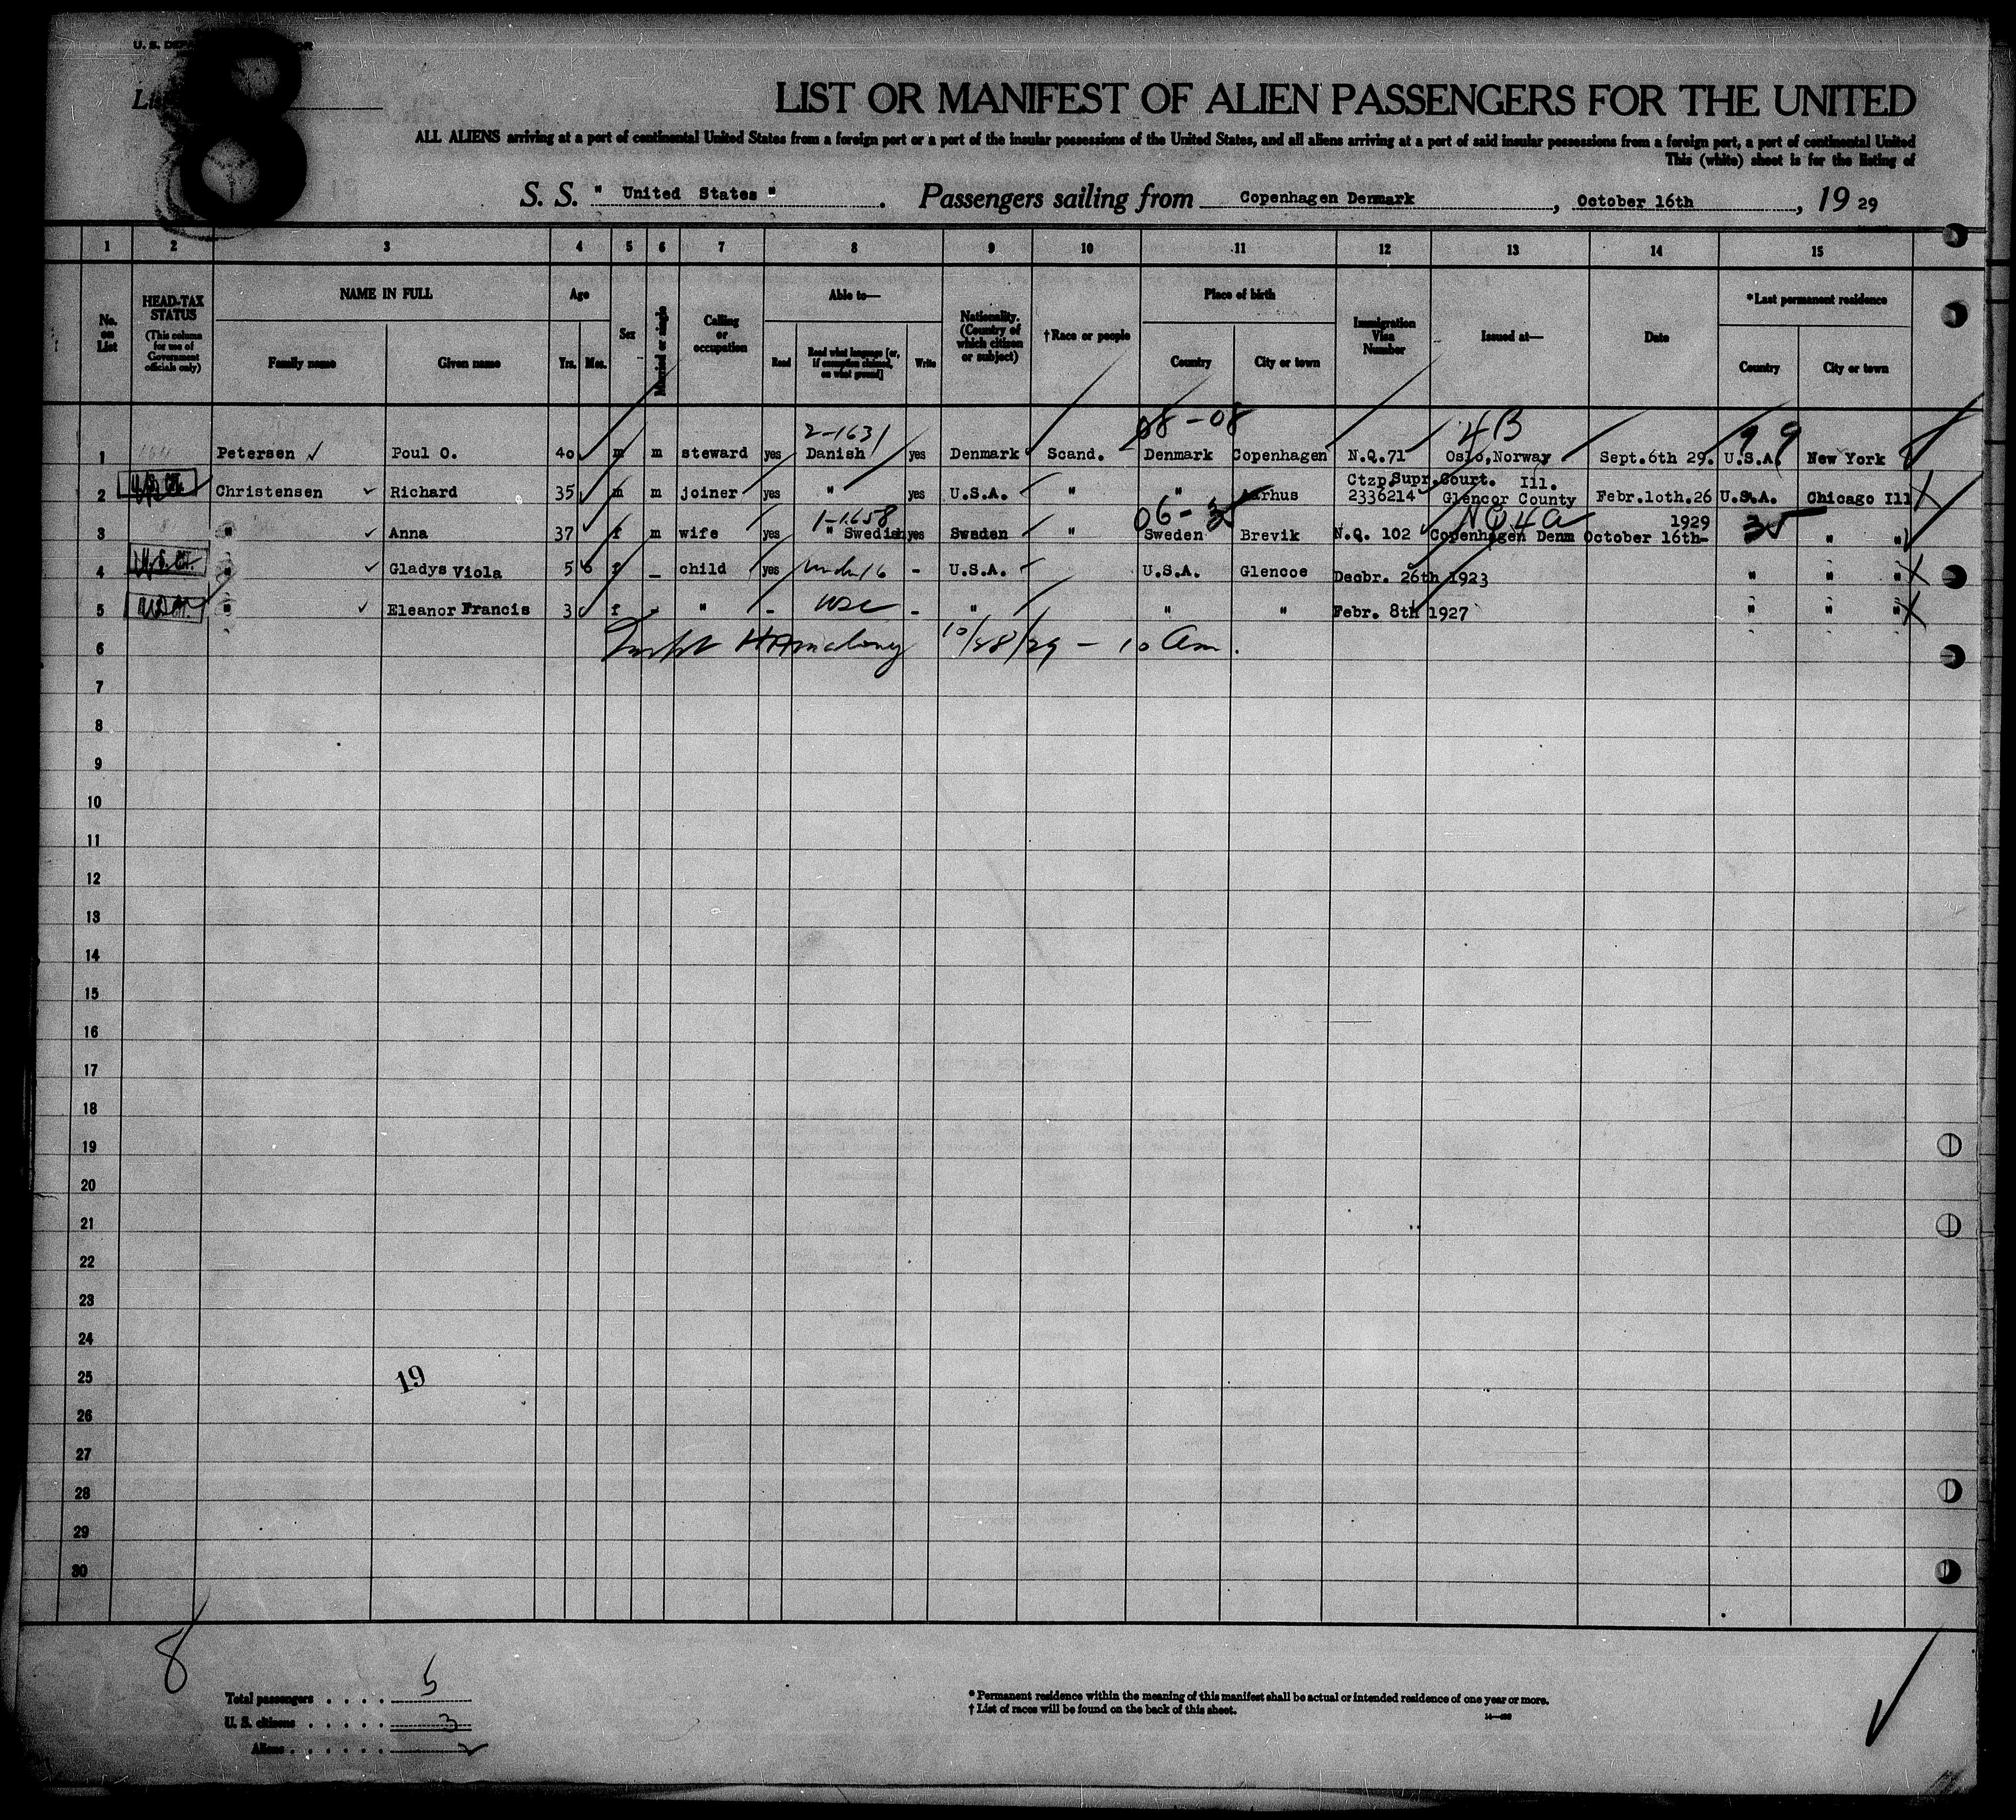 U. S. DE OR
8
LIST OR MANIFEST OF ALIEN PASSENGERS FOR THE UNITED
ALL ALIENS arriving at a port of continental United States from a foreign port or a port of the insular possessions of the United States, and all aliens arriving at a port of said insular possessions from a foreign port, a port of continental United
This (white) sheet is for the listing of
S. S. " United States " . Passengers sailing from Copenhagen Denmark , October 16th , 19 29
1 2 3 4 5 6 7 8 9 10 11 12 13 14 15
No. on List
HEAD-TAX STATUS (This column for use of Government officials only)
NAME IN FULL
Family name Given name
Age
Yrs. Mos.
Sex
Married or single
Calling or occupation
Able to—
Read Read what language [or, if exemption claimed, on what ground] Write
Nationality. (Country of which citizen or subject)
†Race or people
Place of birth
Country City or town
Immigration Visa Number
Issued at—
Date
*Last permanent residence
Country City or town
2-1631 08-08 4B 99
1 Petersen Poul O. 40 m m steward yes Danish yes Denmark Scand. Denmark Copenhagen N.Q.71 Oslo,Norway Sept.6th 29. U.S.A. New York
Ctzp.Supr.Court. Ill.
2 U.S. CT. Christensen Richard 35 m m joiner yes " yes U.S.A. " " Aarhus 2336214 Glencor County Febr.1oth.26 U.S.A. Chicago Ill
1-1658 06-35 NQ4a 1929 35
3 " Anna 37 f m wife yes " Swedish yes Sweden " Sweden Brevik N.Q. 102 Copenhagen Denm October 16th- " "
4 U.S. CT. " Gladys Viola 5 6 f _ child yes under 16 - U.S.A. U.S.A. Glencoe Decbr. 26th 1923 " " "
5 " Eleanor Francis 3 f - " - USC - " " " Febr. 8th 1927 " " "
6 10/28/29 - 10 am.
7
8
9
10
11
12
13
14
15
16
17
18
19
20
21
22
23
24
25 19
26
27
28
29
30
8
Total passengers . . . . 5
U. S. citizens . . . . . 3
Aliens . . . . . . 2
* Permanent residence within the meaning of this manifest shall be actual or intended residence of one year or more.
† List of races will be found on the back of this sheet.